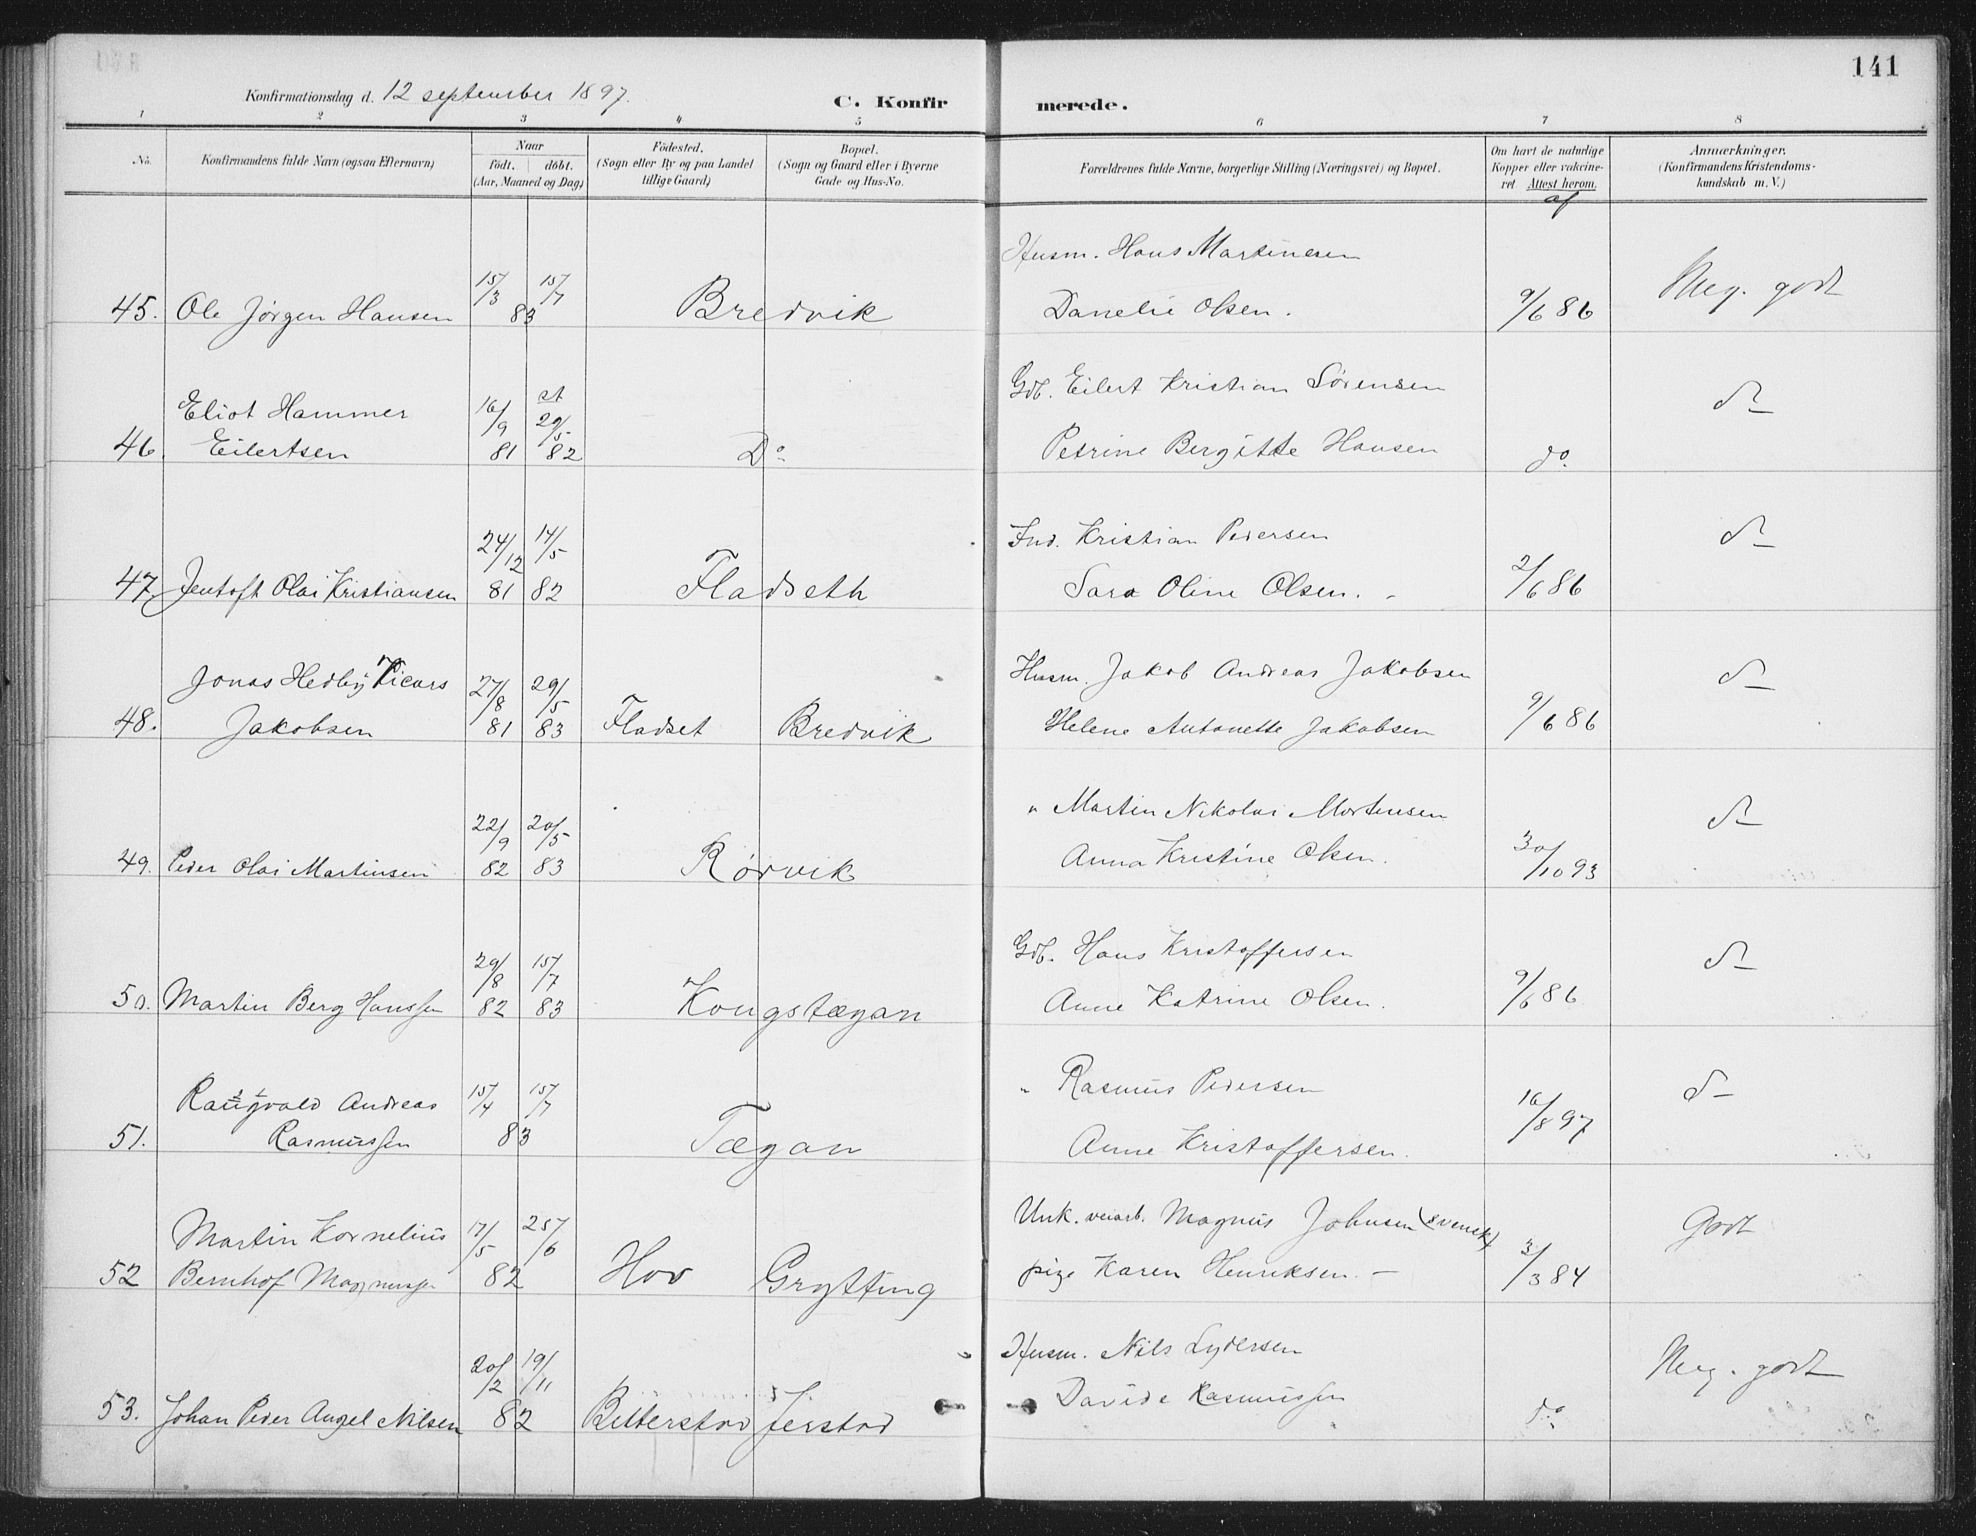 141
Konfirmationsdag d. 12 september 1897.
C. Konfir merede.
1 2 3 4 5 6 7 8
No. Konfirmandens fulde Navn (ogsaa Efternavn) Naar födt. döbt. (Aar, Maaned og Dag) Födested. (Sogn eller By og paa Landet tillige Gaard) Bopæl. (Sogn og Gaard eller i Byerne Gade og Hus-No. Forældrenes fulde Navne, borgerlige Stilling (Næringsvei) og Bopæl. Om havt de naturlige Kopper eller vakcineret Attest herom. af Anmærkninger. (Konfirmandens Kristendomskundskab m. V.)
15/3 15/7 Husm. Hans Martinesen
45. Ole Jörgen Hansen 83 Bredvik Danelie Olsen. 9/6 86 Meg. godt
Eliot Hammer 16/9 st 29/5 Gdb. Eilert Kristian Sörensen d–
46. Eilertsen 81 82 Do Petrine Bergitte Hansen do.
24/12 14/5 Ind. Kristian Pedersen d–
47. Jentoft Olai Kristiansen 81 82 Fladseth Sara Oline Olsen. 2/6 86
Jonas Hedly Vicars 27/8 29/5 Husm. Jakob Andreas Jakobsen d–
48. Jakobsen 81 83 Fladset Bredvik Helene Antonette Jakobsen 9/6 86
22/9 20/5 " Martin Nikolai Mortensen d–
49. Peder Olai Martinsen 82 83 Rörvik Anna Kristine Olsen. 30/10 93
29/8 15/7 Gdb. Hans Kristoffersen d–
50. Martin Berg Hanssen 82 83 Kongstægan Anne Katrine Olsen. 9/6 86
Raugvald Andreas 15/4 15/7 " Rasmus Pedersen d–
51. Rasmussen 83 Tægan Anne Kristoffersen. 16/8 97
Martin Kornelius 17/5 25/6 Unk. Magnus Johnsen (svensk) Godt
52 Bernhof Magnussen 82 Hov Grytting pige Karen Henriksen. – 3/3 84
20/2 19/11 Husm. Nils Lydersen Meg. godt
53. Johan Peder Angel Nilsen 82 Bitterstad Jerstad Davide Rasmussen do.